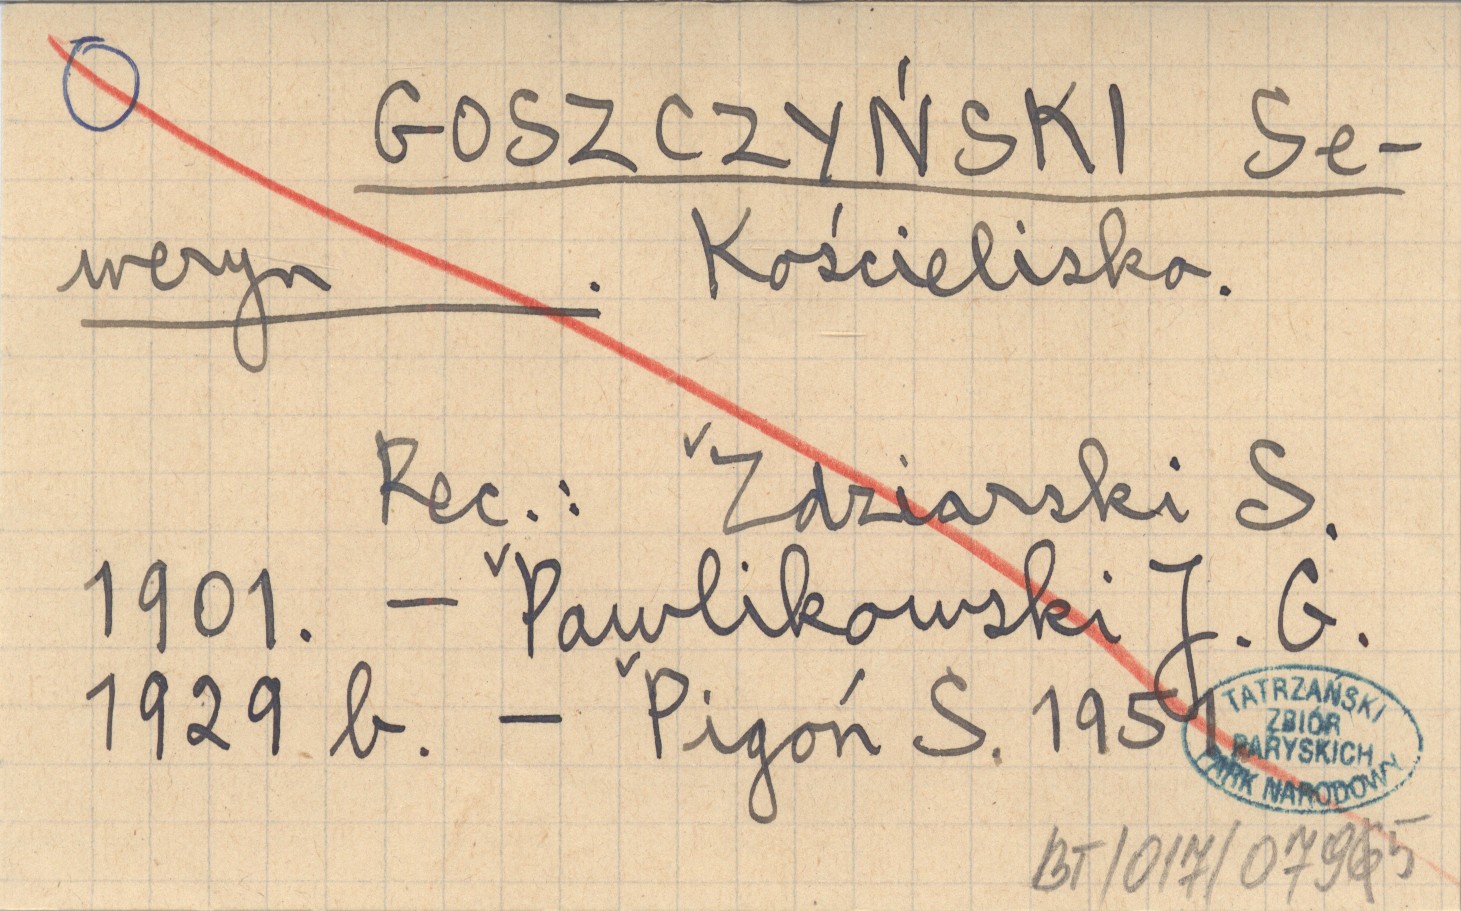 GOSZCZYŃSKI Se-
weryn . Kościelisko.
Rec.: Zdziarski S.
1901. — Pawlikowski J. G.
1929 b. — Pigoń S. 1951
TATRZAŃSKI
ZBIÓR
PARYSKICH
PARK NARODOWY